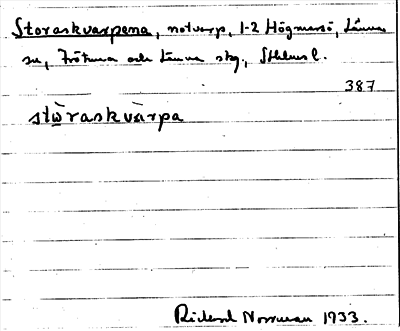 Storaskvarpena, notvarp, 1-2 Högmarsö, Länna
sn, Frötuna och Länna skg, Sthlms l.
387
stòraskvàrpa
Rickard Norrman 1933.